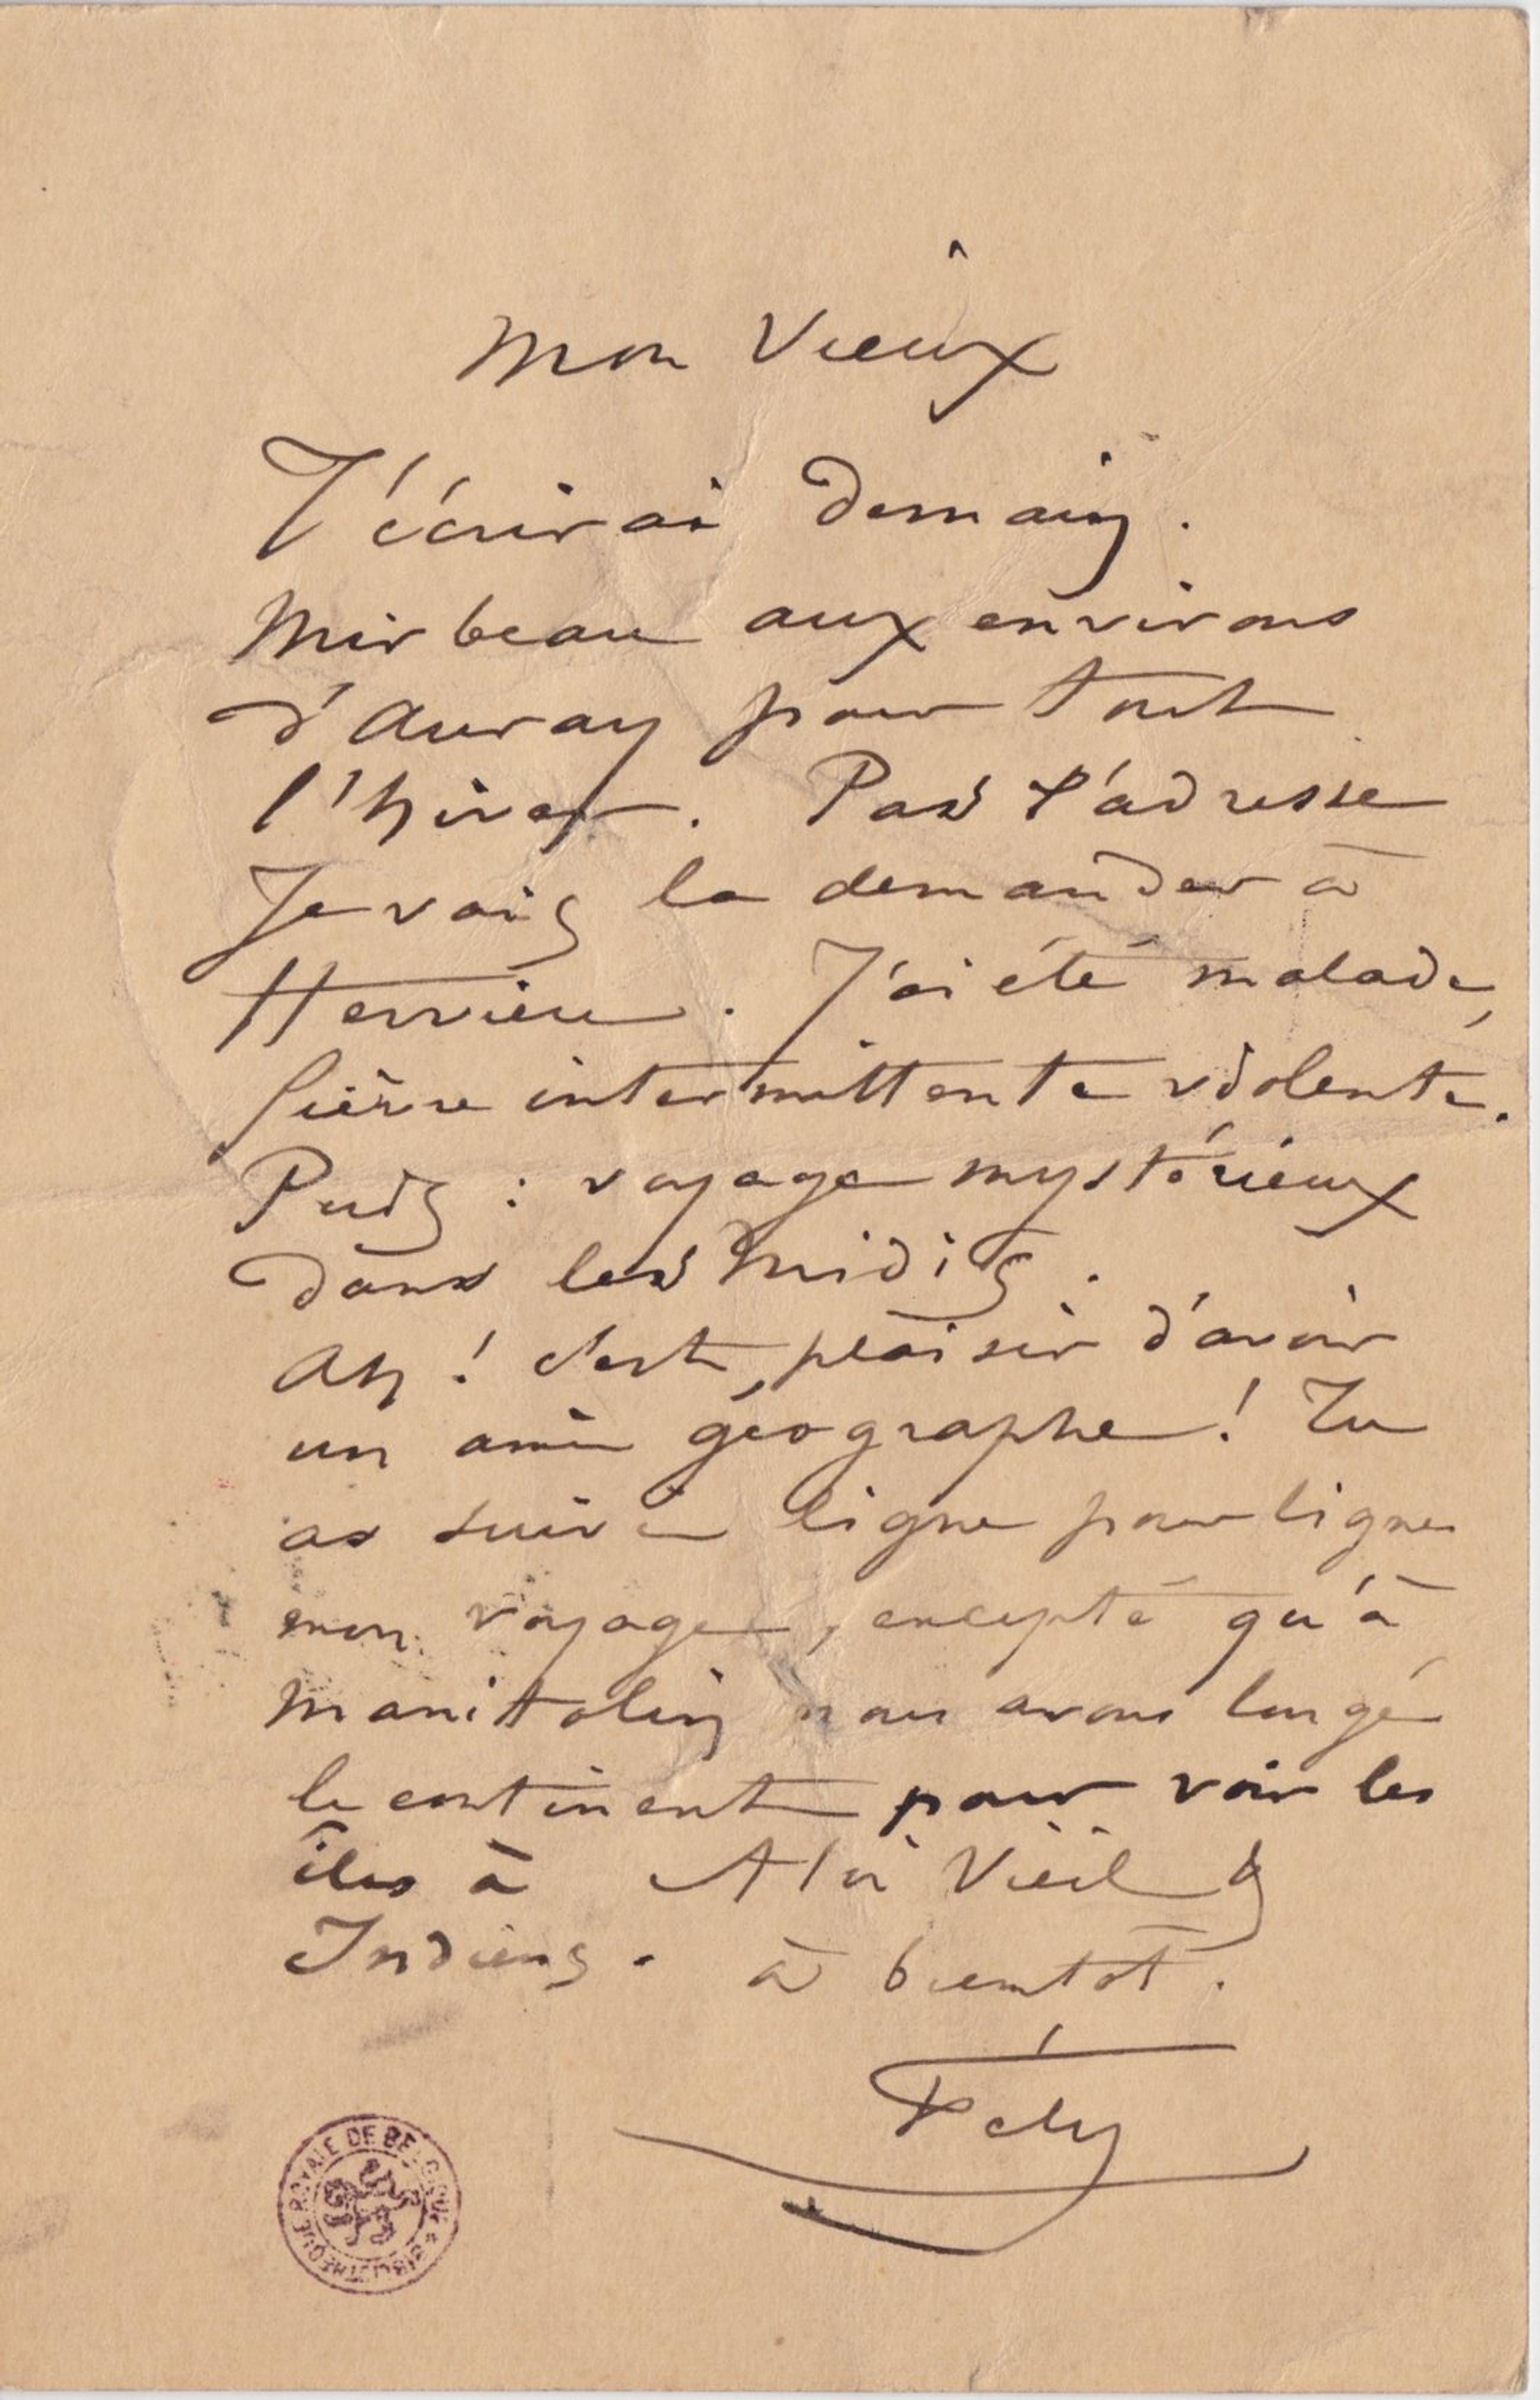 Mon Vieux
T'écrirai demain.
Mirbeau aux environs
d'Auray pour tout
l'hiver. Pas l'adresse
Je vais la demander à
Hervieu. J'ai été malade,
fièvre intermittente violente.
Puis : voyage mystérieux
dans les Midis.
Ah ! c'est plaisir d'avoir
un ami géographe ! Tu
as suivi ligne par ligne
mon voyage, excepté qu'à
Manittolin nous avons longé
le continent pour voir les
îles à
Indiens. à bientôt.
Fély
BIBLIOTHEQUE ROYALE DE BELGIQUE *